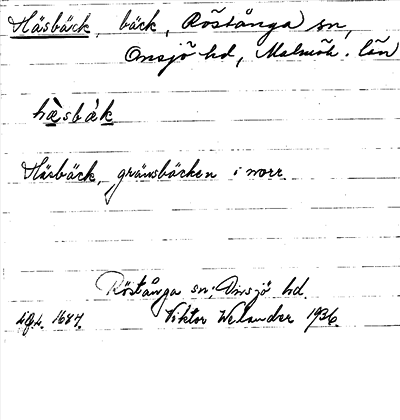 Häsbäck, bäck, Röstånga sn,
Onsjö hd, Malmöh. län
hὰsbák
Häsbäck, gränsbäcken i norr.
Röstånga sn, Onsjö hd.
1687. Viktor Welander 1936.